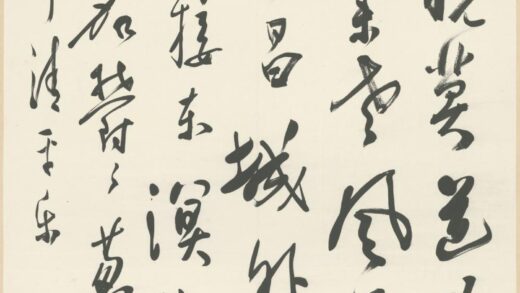 晓莫道
未老风
昌城外
接东溟
加郁々葱
清平乐